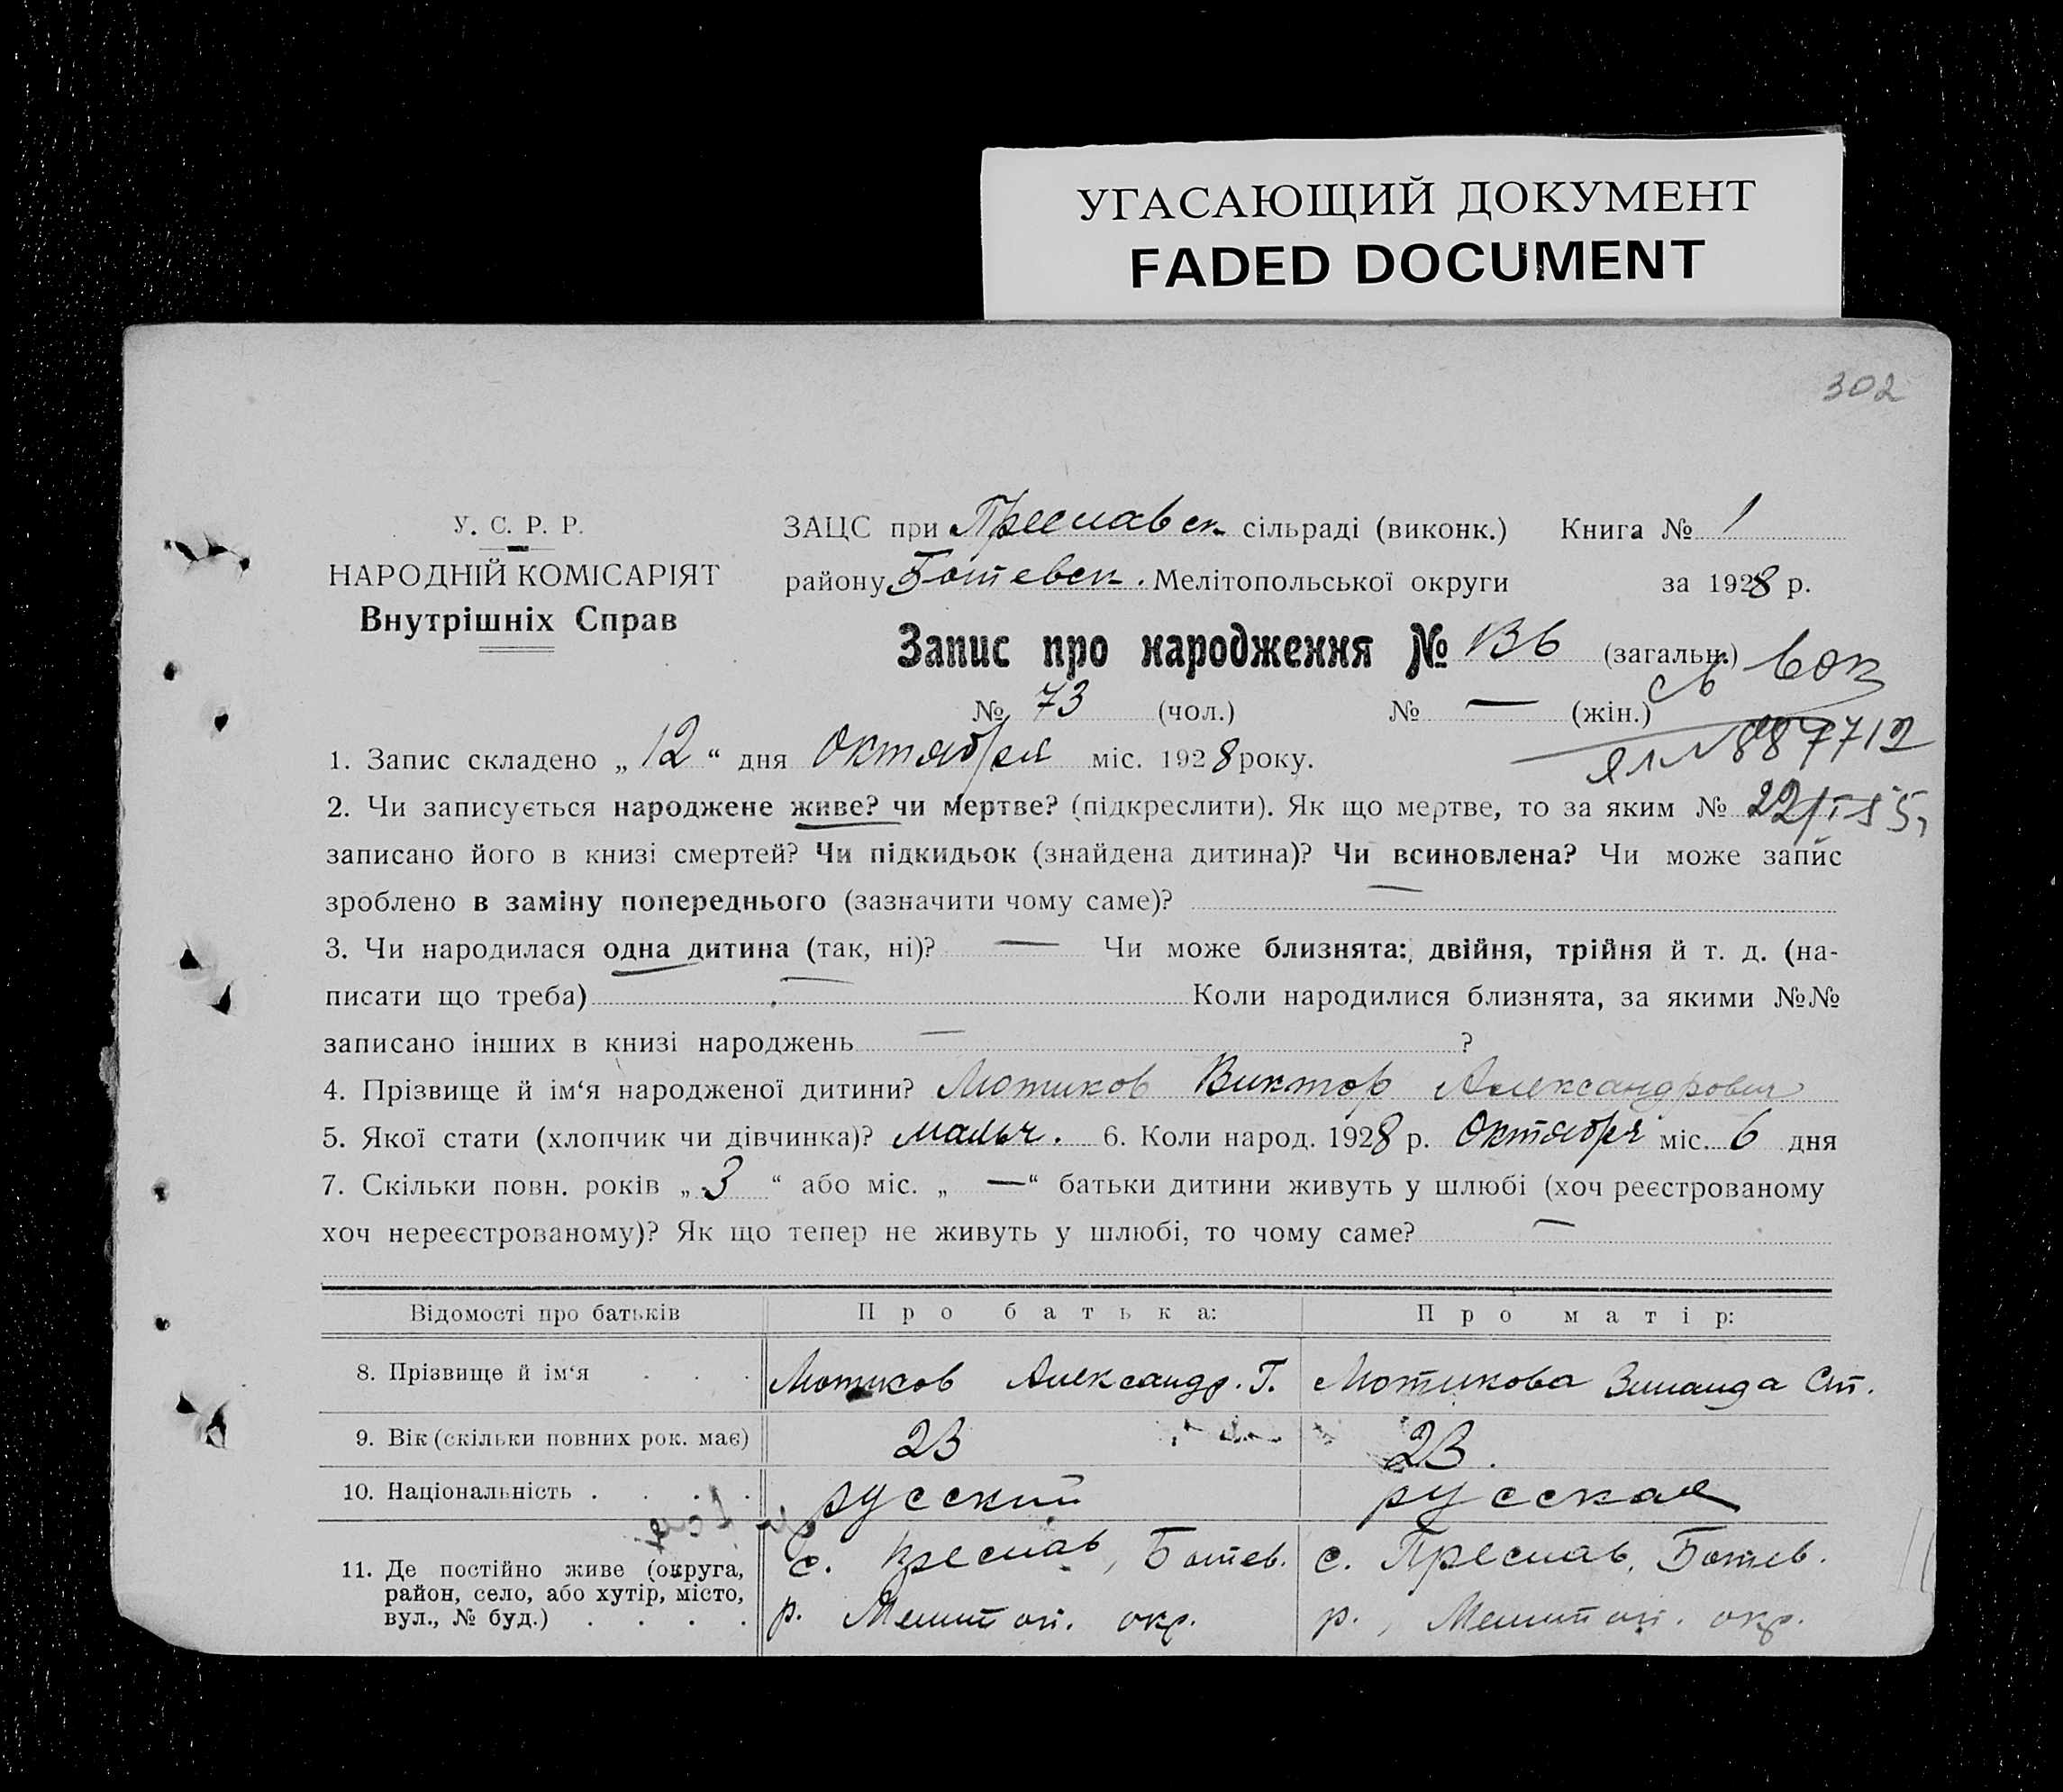 УГАСАЮЩИЙ ДОКУМЕНТ
FADED DOCUMENT
302
У. С. Р. Р.
НАРОДНІЙ КОМІСАРІЯТ
Внутрішніх Справ
ЗАЦС при Преславск. сільраді (виконк.) Книга № 1
району Ботевск. Мелітопольської округи за 1928 р.
Запис про народження № 136 (загальн.)
№ 73 (чол.) № — (жін.)
св
ЯЛ № 887712
1. Запис складено „ 12 “ дня Октября міс. 1928 року.
2. Чи записується народжене живе? чи мертве? (підкреслити). Як що мертве, то за яким №
22/I-55
записано його в книзі смертей? Чи підкидьок (знайдена дитина)? Чи всиновлена? Чи може запис
зроблено в заміну попереднього (зазначити чому саме)? —
3. Чи народилася одна дитина (так, ні)? — Чи може близнята: двійня, трійня й т. д. (на-
писати що треба) — Коли народилися близнята, за якими №№
записано інших в книзі народжень — ?
4. Прізвище й ім‘я народженої дитини? Мотиков Виктор Александрович
5. Якої стати (хлопчик чи дівчинка)? мальч. 6. Коли народ. 1928 р. Октября міс. 6 дня
7. Скільки повн. років „ 3 “ або міс. „ — “ батьки дитини живуть у шлюбі (хоч реєстрованому
хоч нереєстрованому)? Як що тепер не живуть у шлюбі, то чому саме? —
Відомості про батьків Про батька: Про матір:
8. Прізвище й ім‘я . . . Мотиков Александр. Г. Мотикова Зинаида Ст.
9. Вік (скільки повних рок. має) 23 23.
10. Національність . . . . русский русская
11. Де постійно живе (округа, с. Преслав, Ботев. с. Преслав, Ботев.
район, село, або хутір, місто,
вул., № буд.) . . . . р. Мелитоп. окр. р., Мелитоп. окр.